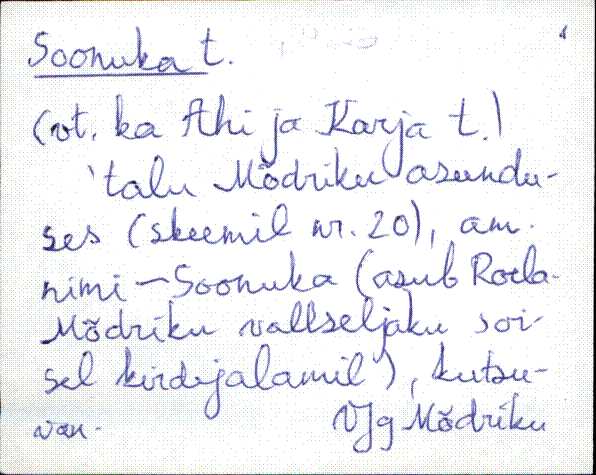 Soonuka t.
(vt. ka Ahi ja Karja t.)
'talu Mõdriku asundu-
ses (skeemil nr. 20), am.
nimi - Soonuka (asub Roela-
Mõdriku vallseljaku soi-
sel kirdejalamil), kutsu-
van- VJg Mõdriku